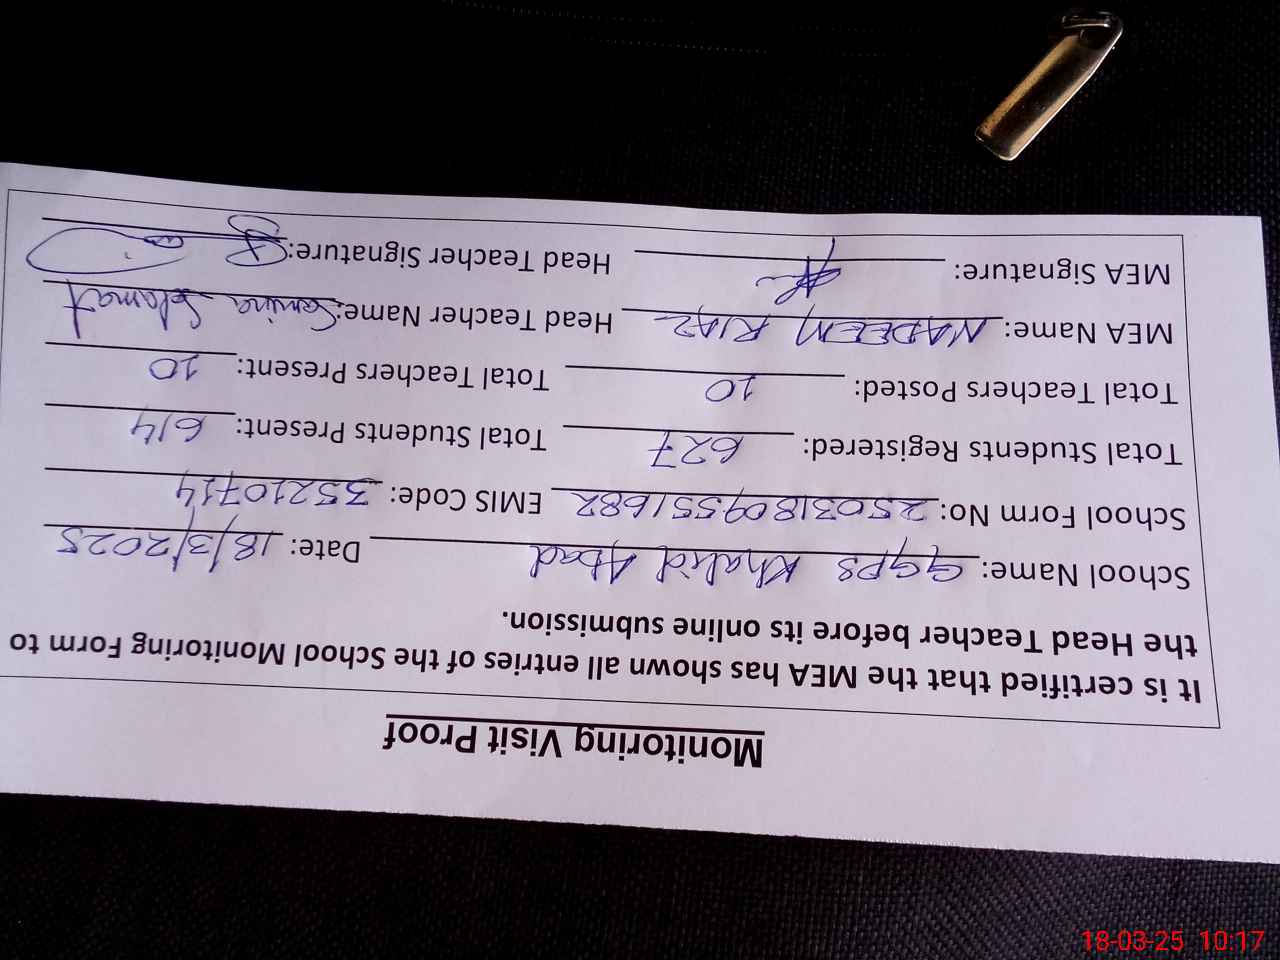 Monitoring Visit Proof
It is certified that the MEA has shown all entries of the School Monitoring Form to
the Head Teacher before its online submission.
School Name: GGPS Khalid Abad Date: 18/3/2025
School Form No: 25031809551682 EMIS Code: 35210714
Total Students Registered: 627 Total Students Present: 614
Total Teachers Posted: 10 Total Teachers Present: 10
MEA Name: NADEEM RIAZ Head Teacher Name: Samina Selamat
MEA Signature: Head Teacher Signature:
18-03-25 10:17